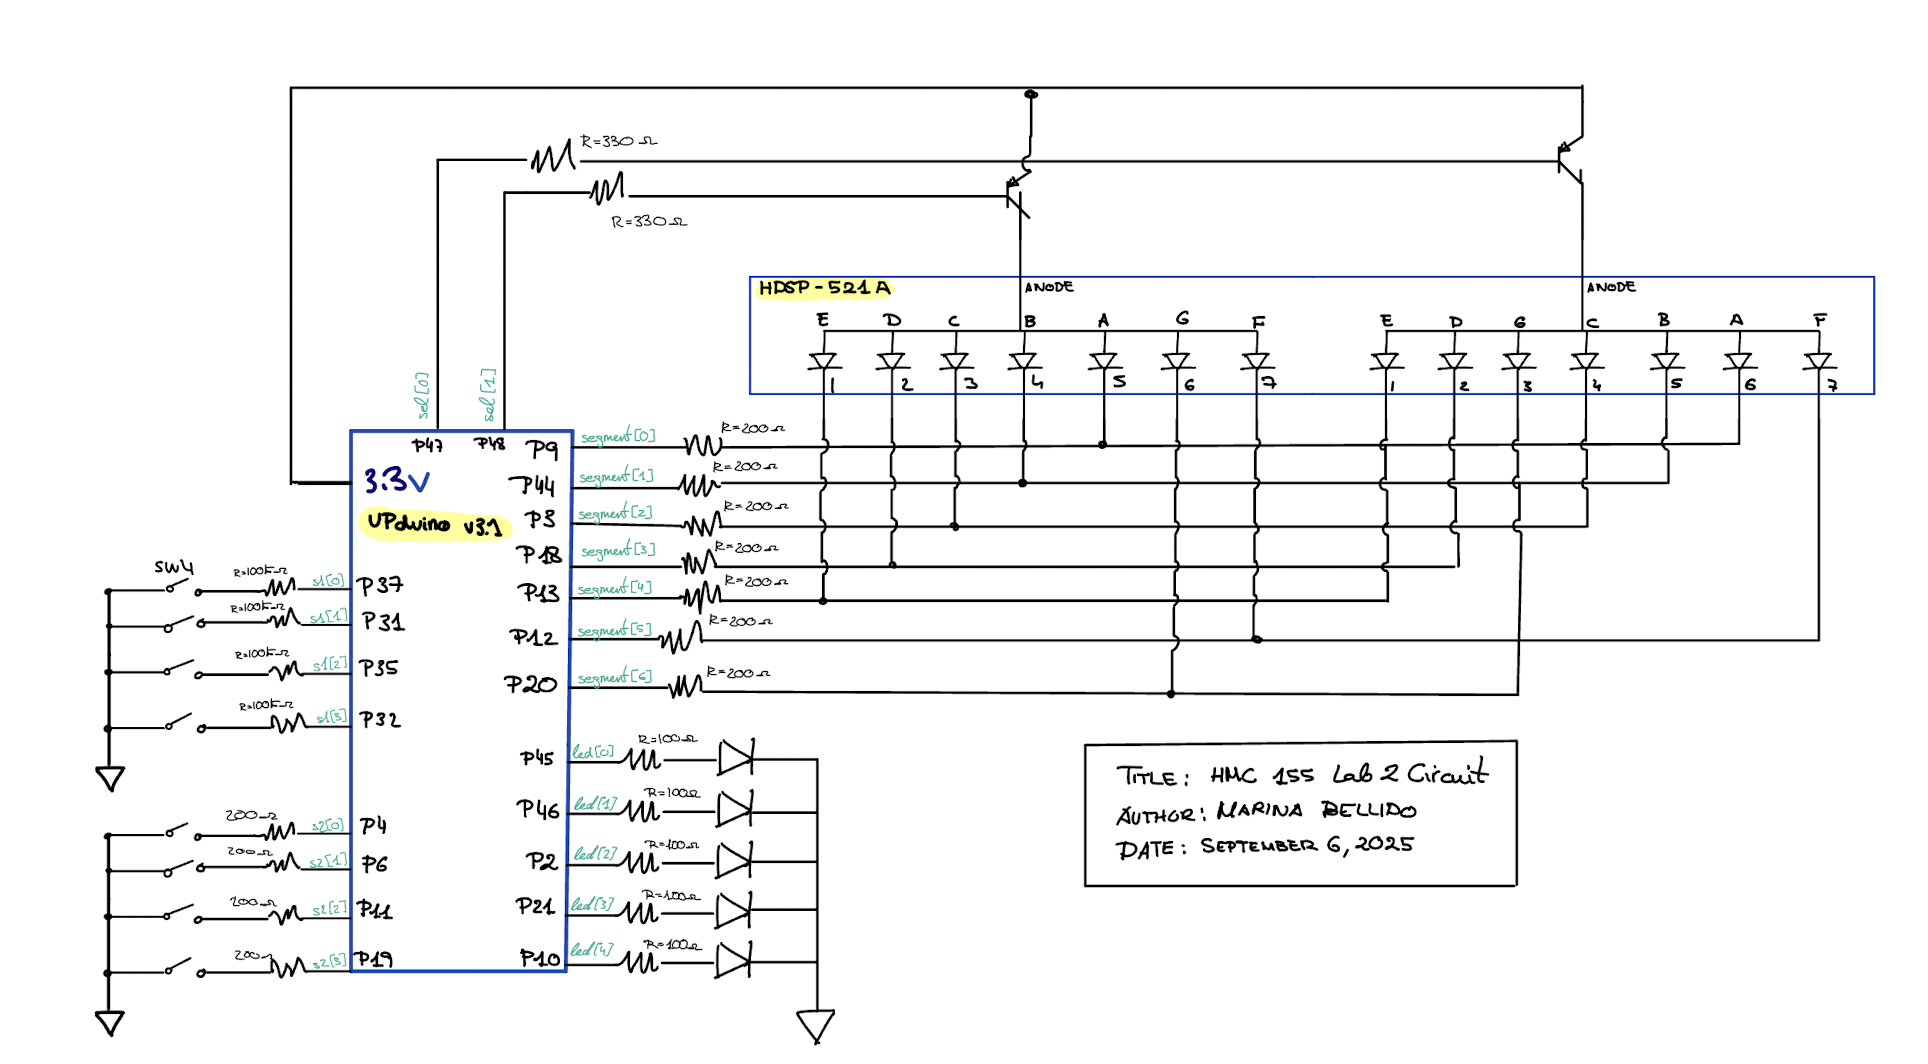 R=330Ω
R=330Ω
HDSP-521A
ANODE
ANODE
E D C B A G F
E D G C B A F
1 2 3 4 5 6 7
1 2 3 4 5 6 7
sel[0]
sel[1]
P47 P48
3.3V
UPduino v3.1
P9 segment[0] R=200Ω
P44 segment[1] R=200Ω
P3 segment[2] R=200Ω
P18 segment[3] R=200Ω
P13 segment[4] R=200Ω
P12 segment[5] R=200Ω
P20 segment[6] R=200Ω
SW4
R=100KΩ s1[0] P37
R=100KΩ s1[1] P31
R=100KΩ s1[2] P35
R=100KΩ s1[3] P32
200Ω s2[0] P4
200Ω s2[1] P6
200Ω s2[2] P11
200Ω s2[3] P19
P45 led[0] R=100Ω
P46 led[1] R=100Ω
P2 led[2] R=100Ω
P21 led[3] R=100Ω
P10 led[4] R=100Ω
TITLE: HMC 155 Lab 2 Circuit
AUTHOR: MARINA BELLIDO
DATE: SEPTEMBER 6, 2025